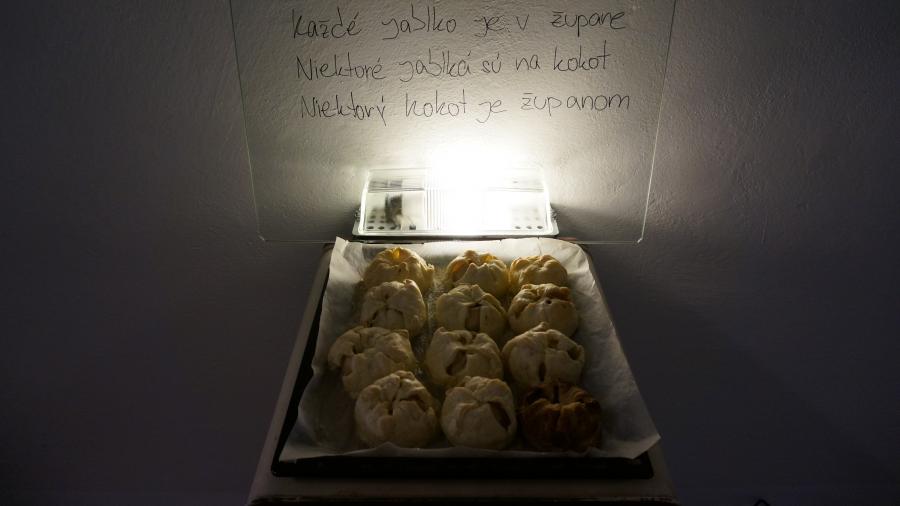 Každé jablko je v župane
Niektoré jablká sú na kokot
Niektorý kokot je županom